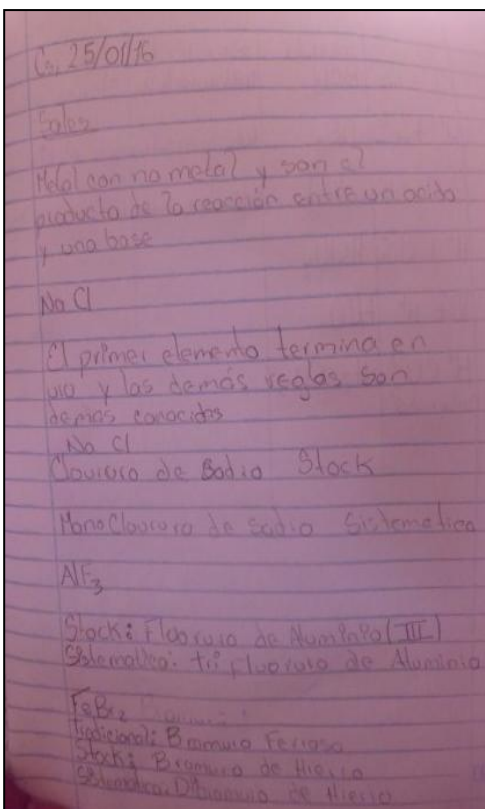 25/01/16
Sales
Metal con no metal y son el
producto de la reacción entre un acido
y una base
Na Cl
El primer elemento termina en
uro y las demás reglas son
demas conocidas
Na Cl
Clouroro de Sodio Stock
Mono Clouroro de sodio Sistematica
AlF3
Stock: Fluoruro de Aluminio (III)
Sistematica: tri fluoruro de Aluminio
FeBr2
Tradicional: Bromuro Ferroso
Stock: Bromuro de Hierro
Sistematica: Dibromuro de Hierro